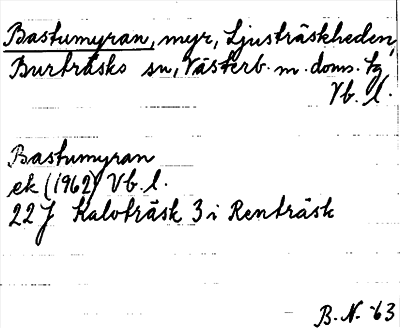 Bastumyran, myr, Ljusträskheden,
Burträsks sn, Västerb. m. doms. tg
Vb. l.
Bastumyran
ek (1962) Vb. l.
22J Kaloträsk 3 i Renträsk
B. N. 63